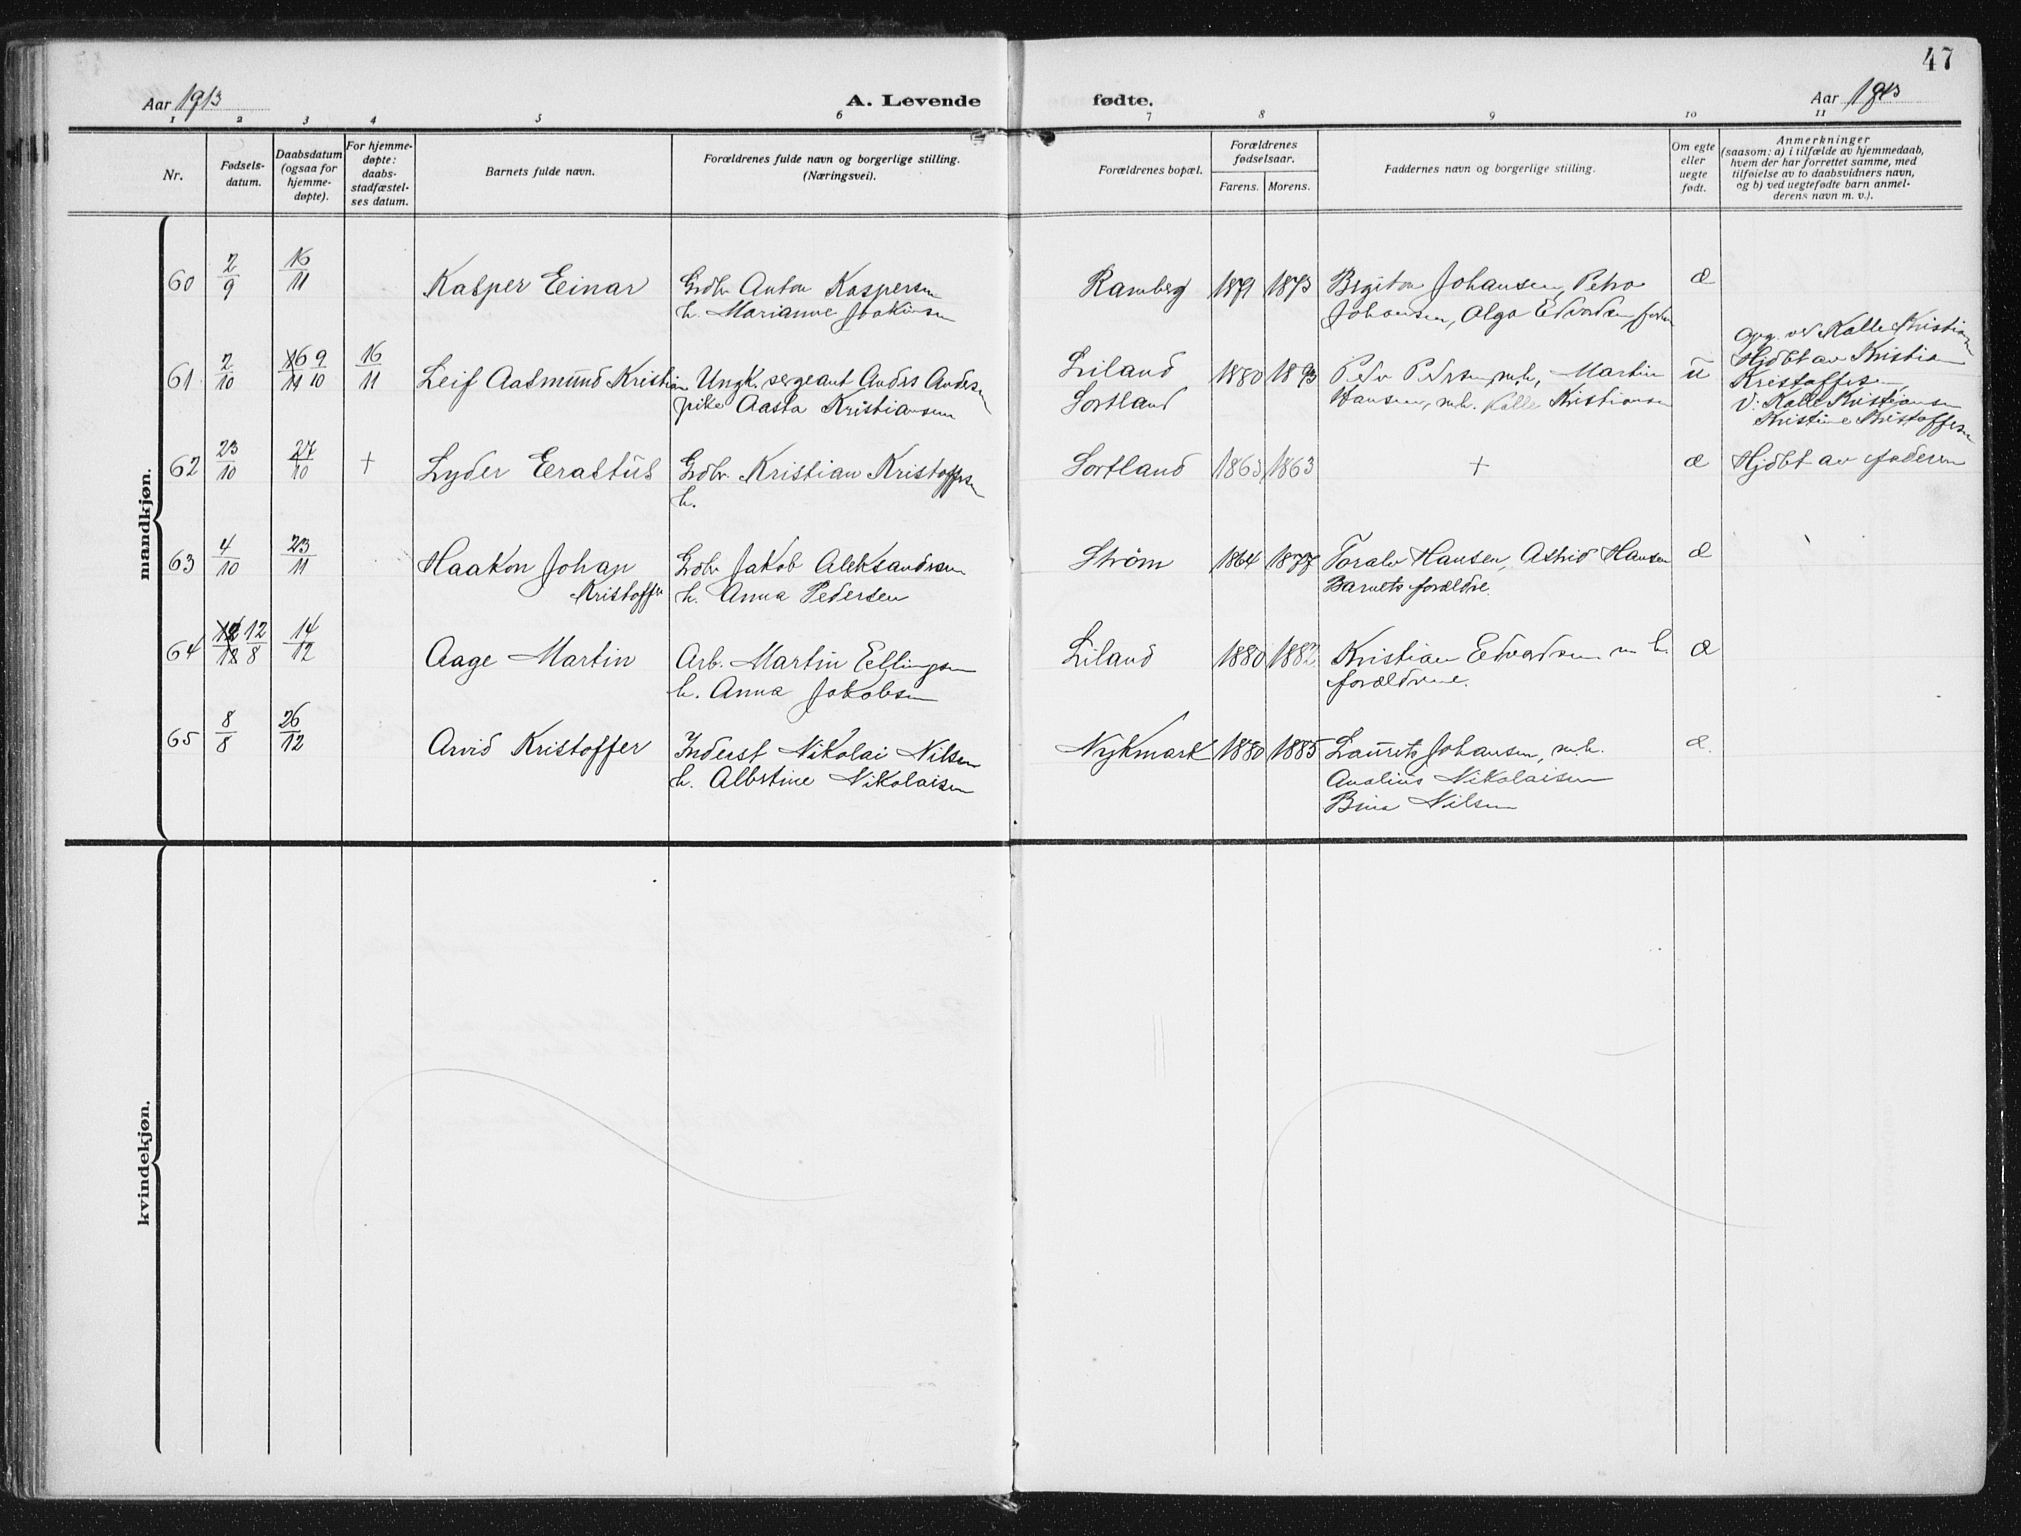 47
Aar 1913
A. Levende
fødte.
Aar 1913
1 2 3 4 5 6 7 8 9 10 11
Nr.
Fødsels-
datum.
Daabsdatum
(ogsaa for
hjemme-
døpte).
For hjemme-
døpte:
daabs-
stadfæstel-
ses datum.
Barnets fulde navn.
Forældrenes fulde navn og borgerlige stilling.
(Næringsvei).
Forældrenes bopæl.
Forældrenes
fødselsaar.
Farens. Morens.
Faddernes navn og borgerlige stilling.
Om egte
eller
uegte
født.
Anmerkninger
(saasom: a) i tilfælde av hjemmedaab,
hvem der har forrettet samme, med
tilføielse av to daabsvidners navn,
og b) ved uegtefødte barn anmel-
derens navn m. v.).
mandkjøn.
60 2/9 16/11 Kasper Einar Grdbr Anton Kaspersen Ramberg 1879 1873 Birgiton Johansen, Petra æ
h. Marianne Joakimsen Johansen, Alga Edvardsen
61 2/10 16/11 9/10 16/11 Leif Aasmund Kristian Ungk. sergeant Anders Andersen Liland 1880 1893 Peder Pedersen, m.h., Martin u
pike Aasta Kristiansen Sortland Hansen, m.h. Kalle Kristiansen
opg. ved Kalle Kristiansen
Hjdbt av Kristian
Kristoffersen
V: Kalle Kristiansen
Kristine Kristoffersen
62 23/10 27/10 + Lyder Erastus Grdbr. Kristian Kristoffersen Sortland 1863 1863 + æ Hjdbt av faderen
h.
63 4/10 23/11 Haakon Johan Grdbr Jakob Aleksandersen Strøm 1864 1877 Toralv Hansen, Astrid Hansen æ
Kristoffer h. Anna Pedersen Barnets forældre.
64 12/8 14/12 Aage Martin Arb. Martin Ellingsen Liland 1880 1882 Kristian Edvardsen m h. æ
h. Anna Jakobsen forældrene.
65 8/8 26/12 Arvid Kristoffer Inderst Nikolai Nilsen Nykmark 1880 1885 Laurits Johansen, m.h. æ.
h. Albertine Nikolaisen Analius Nikolaisen
Bina Nilsen
kvindekjøn.